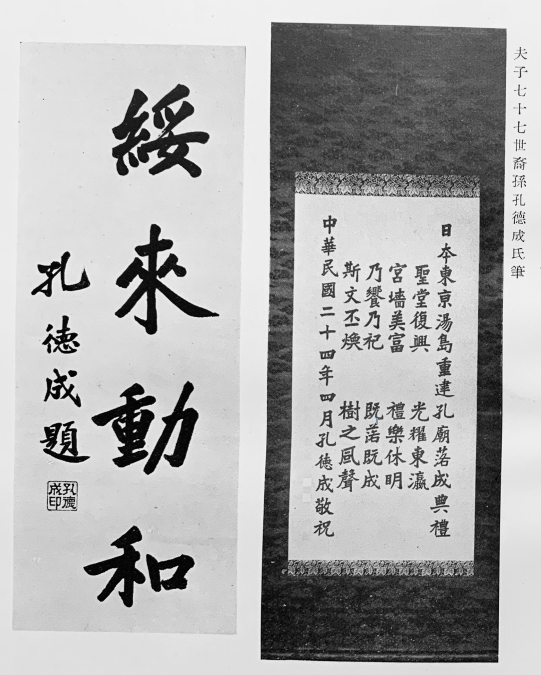 夫子七十七世裔孫孔德成氏筆
日本東京湯島重建孔廟落成典禮
聖堂復興 光耀東瀛
宮墻美富 禮樂休明
乃饗乃祀 既既成
斯文丕煥 樹之風聲
中華民國二十四年四月孔德成敬祝
綏來動和
孔徳成題
孔德成印